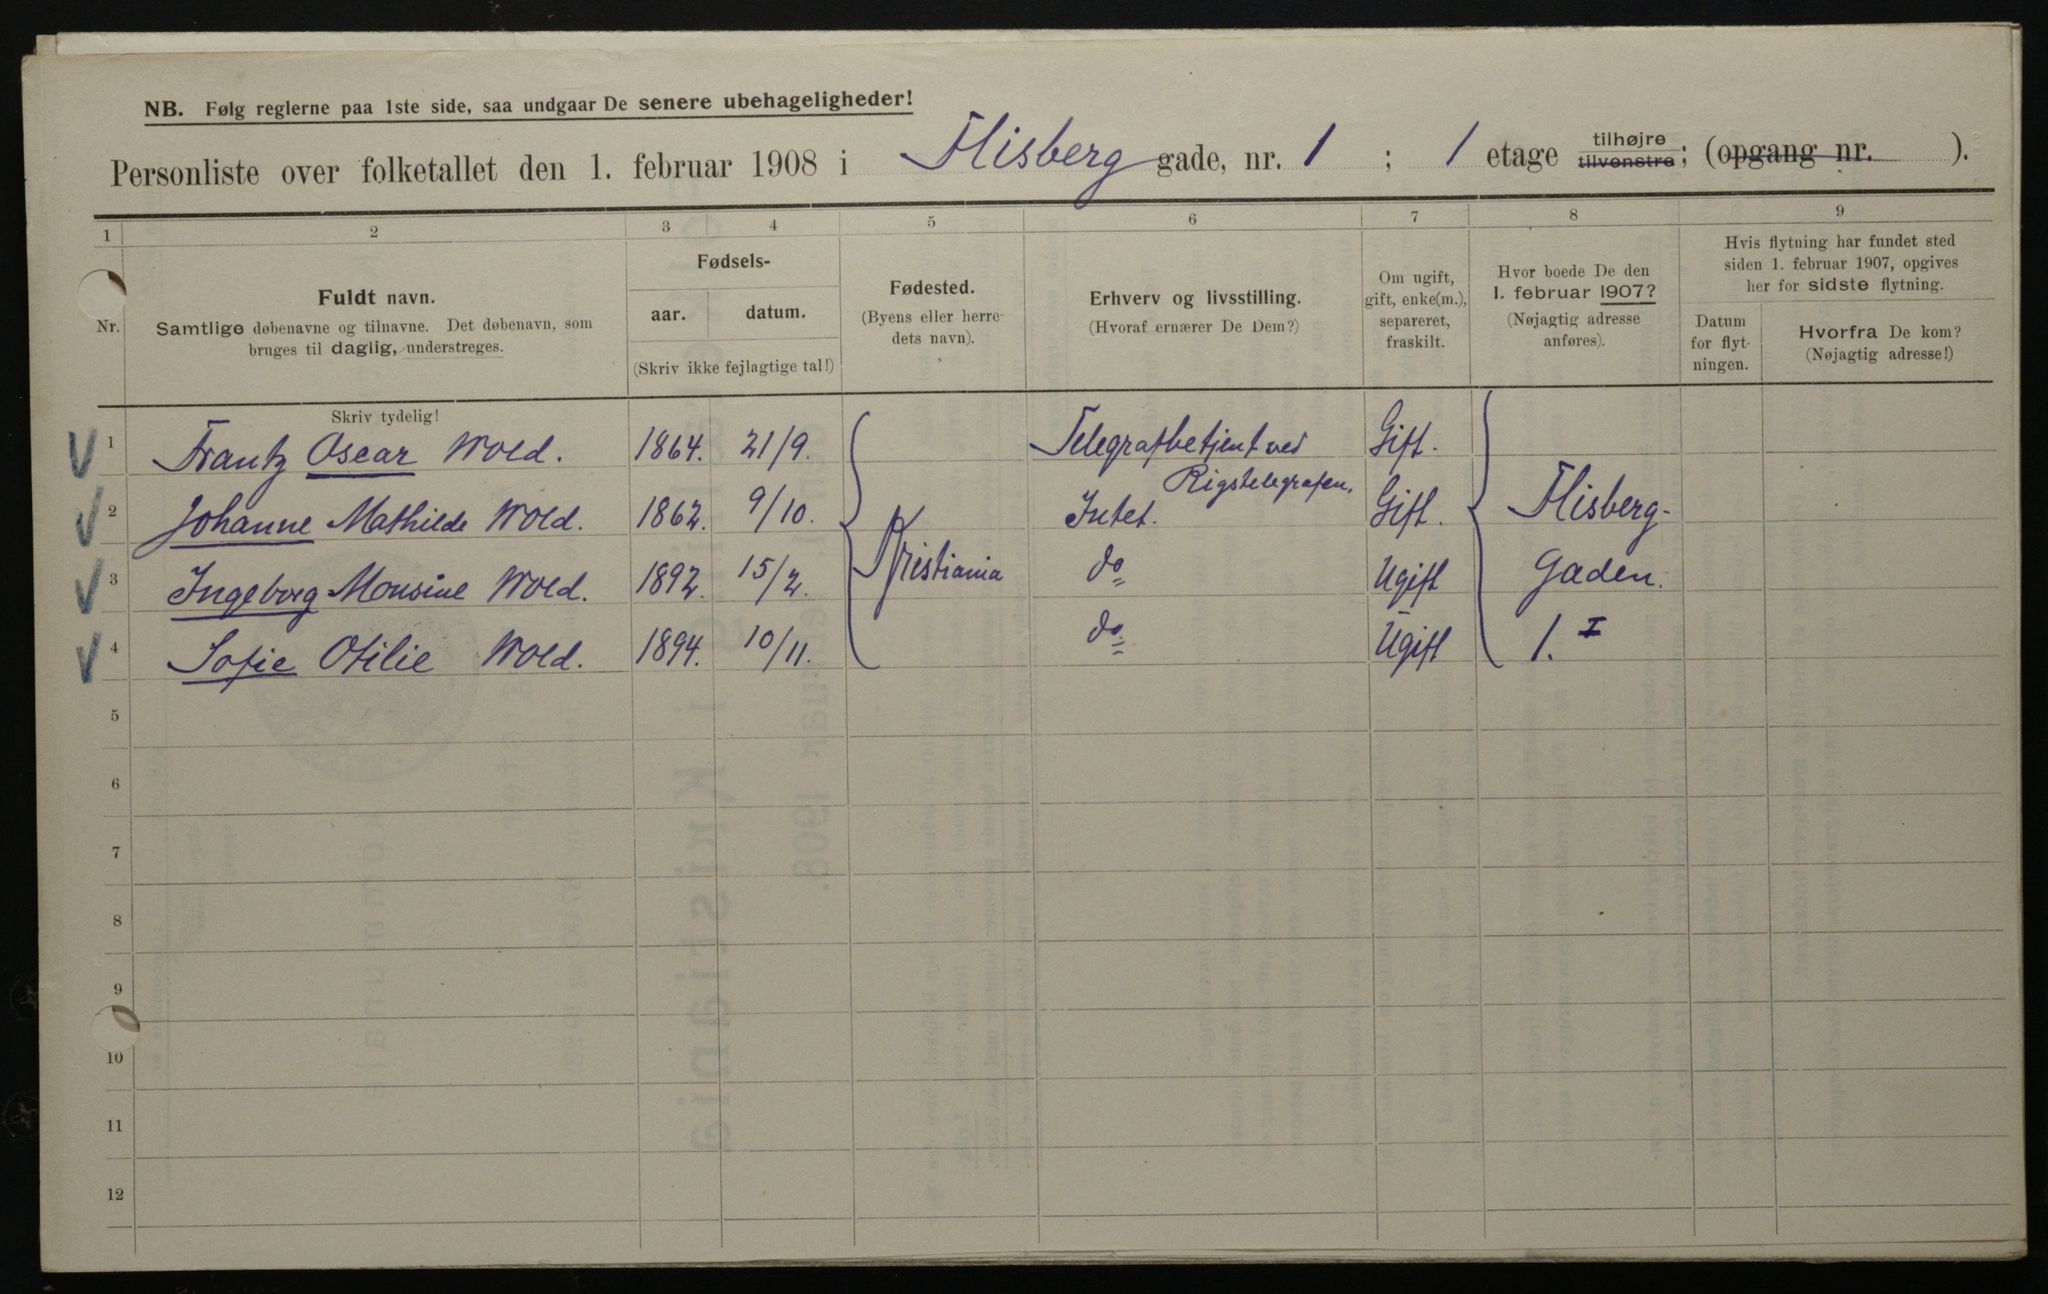 NB. Følg reglerne paa 1ste side, saa undgaar De senere ubehageligheder!
Personliste over folketallet den 1. februar 1908 i Flisberg gade, nr. 1 ; 1 etage tilhøjre tilvenstre; (opgang nr. ).
1 2 3 4 5 6 7 8 9
Nr.
Fuldt navn.
Samtlige døbenavne og tilnavne. Det døbenavn, som
bruges til daglig, understreges.
Fødsels-
aar. datum.
(Skriv ikke fejlagtige tal!)
Fødested.
(Byens eller herre-
dets navn).
Erhverv og livsstilling.
(Hvoraf ernærer De Dem?)
Om ugift,
gift, enke(m.),
separeret,
fraskilt.
Hvor boede De den
1. februar 1907?
(Nøjagtig adresse
anføres).
Hvis flytning har fundet sted
siden 1. februar 1907, opgives
her for sidste flytning.
Datum
for flyt-
ningen.
Hvorfra De kom?
(Nøjagtig adresse!)
Skriv tydelig!
1 Frantz Oscar Wold. 1864. 21/9. Telegrafbetjent ved Gift.
Rigstelegrafen.
2 Johanne Mathilde Wold. 1862. 9/10. Intet. Gift. Flisberg-
3 Ingeborg Monsine Wold. 1892. 15/2. Kristiania do Ugift Gaden.
4 Sofie Otilie Wold. 1894. 10/11. do. Ugift 1. I
5
6
7
8
9
10
11
12